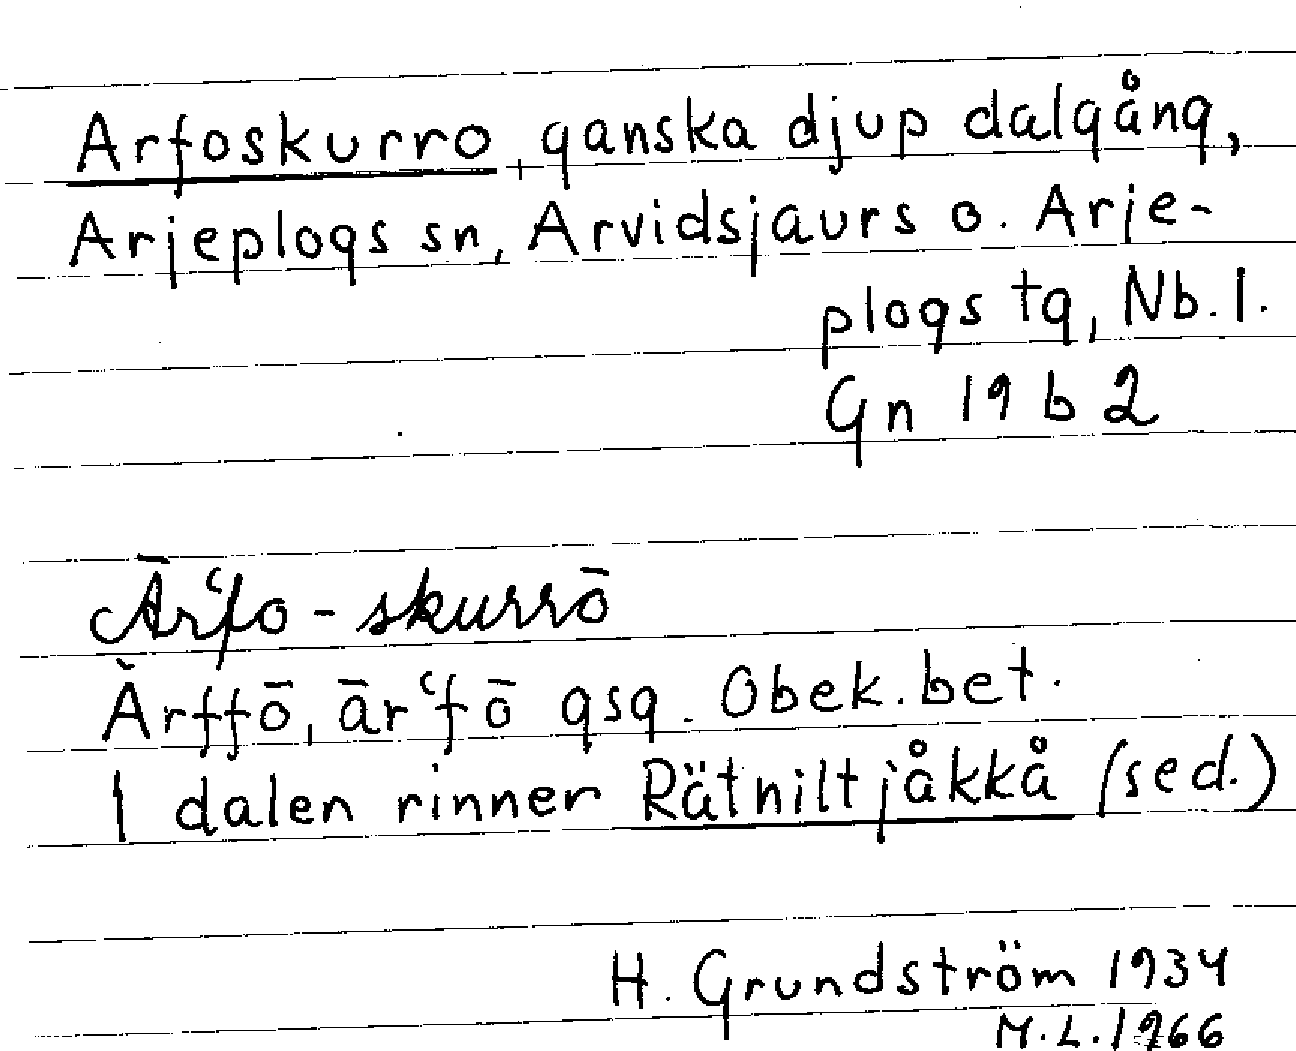 Arfoskurro, ganska djup dalgång,
Arjeplogs sn, Arvidsjaurs o. Arje-
plogs tg, Nb. l.
Gn 19 b 2
Ārʿfo-skurrō
Ărffō, ārʿfō gsg. Obek. bet.
I dalen rinner Rätniltjåkkå (sed.)
H. Grundström 1934
M.L. 1966